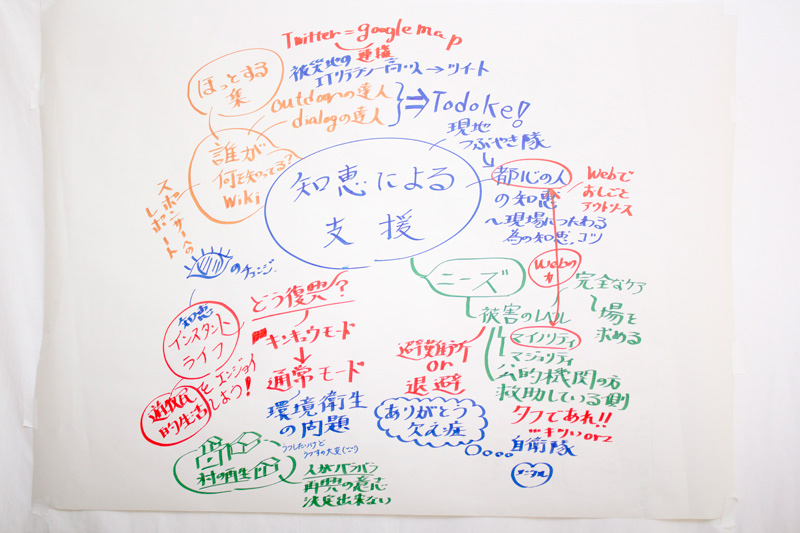 Twitter = google map
被災地の連携
ITリテラシー高い人→ツイート
ほっとする
集
outdoorの達人
dialogの達人
⇒Todoke!
誰が
何を知ってる?
Wiki
スポンサーへの
レポート
知恵による
支援
現地
つぶやき隊
都心の人
の知恵
〜現場につたわる
為の知恵、コツ
Webで
おしごと
アウトソース
Webの
ニーズ
被害のレベル
完全なケア
場を
求める
マイノリティ
マジョリティ
公的機関の方
救助している側
タフであれ!!
…キツいorz
自衛隊
避難所
or
退避
ありがとう
欠え症
のチェンジ
知恵
インスタント
ライフ
遊牧民
的生活
をエンジョイ
しよう!
どう復興?
キンキュウモード
通常モード
環境衛生
の問題
村の再生
人がバラバラ
再興の意志
決定出来ない